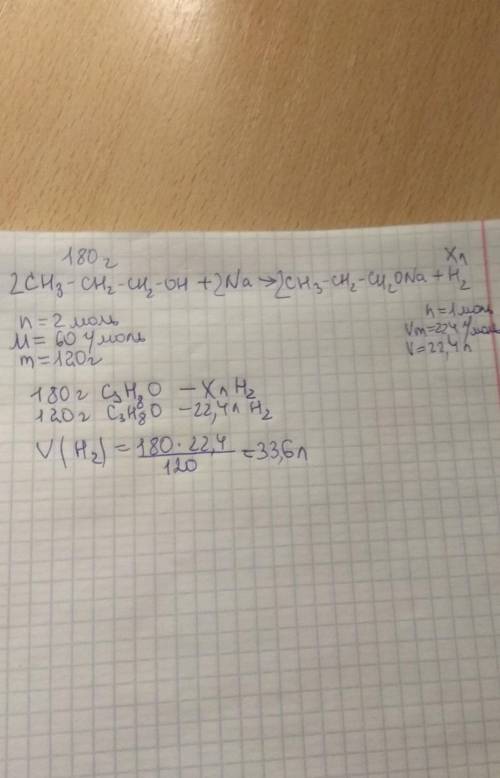 180г
Xл
2CH₃-CH₂-CH₂-OH + 2Na → 2CH₃-CH₂-CH₂ONa + H₂
n = 2 моль
M = 60 г/моль
m = 120г
n = 1 моль
Vm = 22,4 л/моль
V = 22,4 л
180г C₃H₈O – Xл H₂
120г C₃H₈O – 22,4л H₂
V(H₂) = 180 · 22,4 / 120 = 33,6л